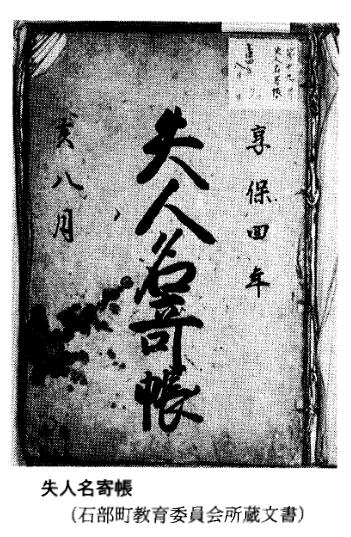 享保四年
失人名寄帳
亥八月
失人名寄帳
(石部町教育委員会所蔵文書)